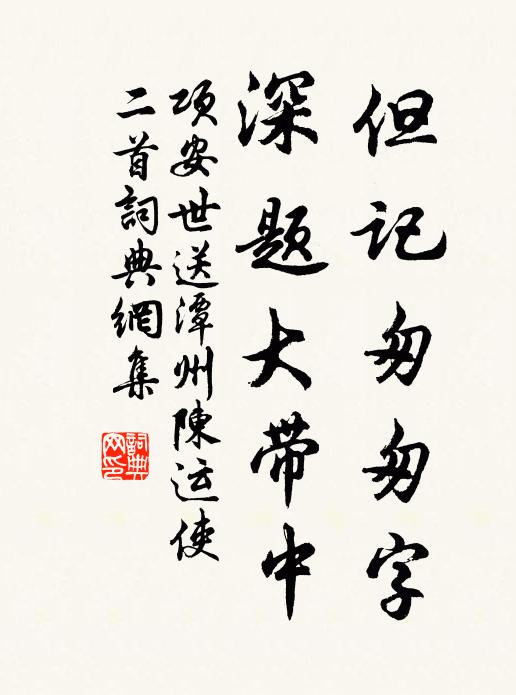 但记匆匆字
深题大带中
项安世送潭州陳运使
二首詞典網集
詞典
网印